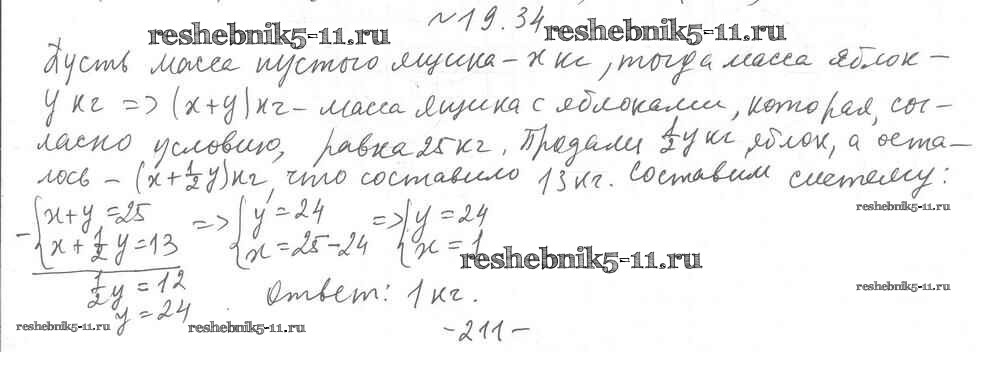 №19.34
reshebnik5-11.ru reshebnik5-11.ru
Пусть масса пустого ящика – x кг, тогда масса яблок –
y кг => (x+y) кг – масса ящика с яблоками, которая, сог-
ласно условию, равна 25 кг. Продали 1/2 y кг яблок, а оста-
лось – (x+1/2 y) кг, что составило 13 кг. Составим систему:
reshebnik5-11.ru
- { x+y=25 => { y=24 => { y=24
x+1/2 y=13 x=25-24 x=1
reshebnik5-11.ru
1/2 y=12
reshebnik5-11.ru
y=24
Ответ: 1 кг.
reshebnik5-11.ru reshebnik5-11.ru
-211-